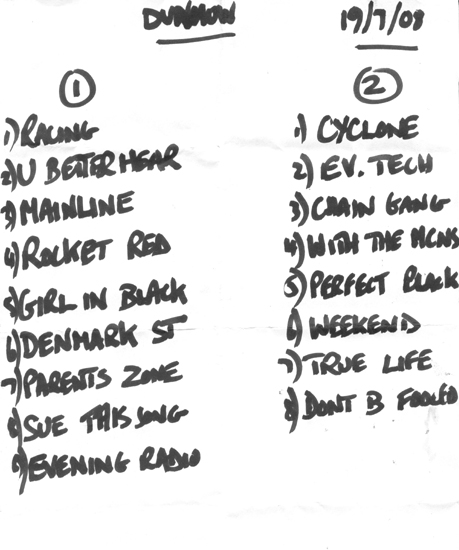 DUNMOW 19/7/08
①
1) RACING
2) U BETTER HEAR
3) MAINLINE
4) ROCKET RED
5) GIRL IN BLACK
6) DENMARK ST
7) PARENTS ZONE
8) SUE THIS SONG
9) EVENING RADIO
②
1) CYCLONE
2) EV. TECH
3) CHAIN GANG
4) WITH THE MCNS
5) PERFECT BLACK
6) WEEKEND
7) TRUE LIFE
8) DONT B FOOLED